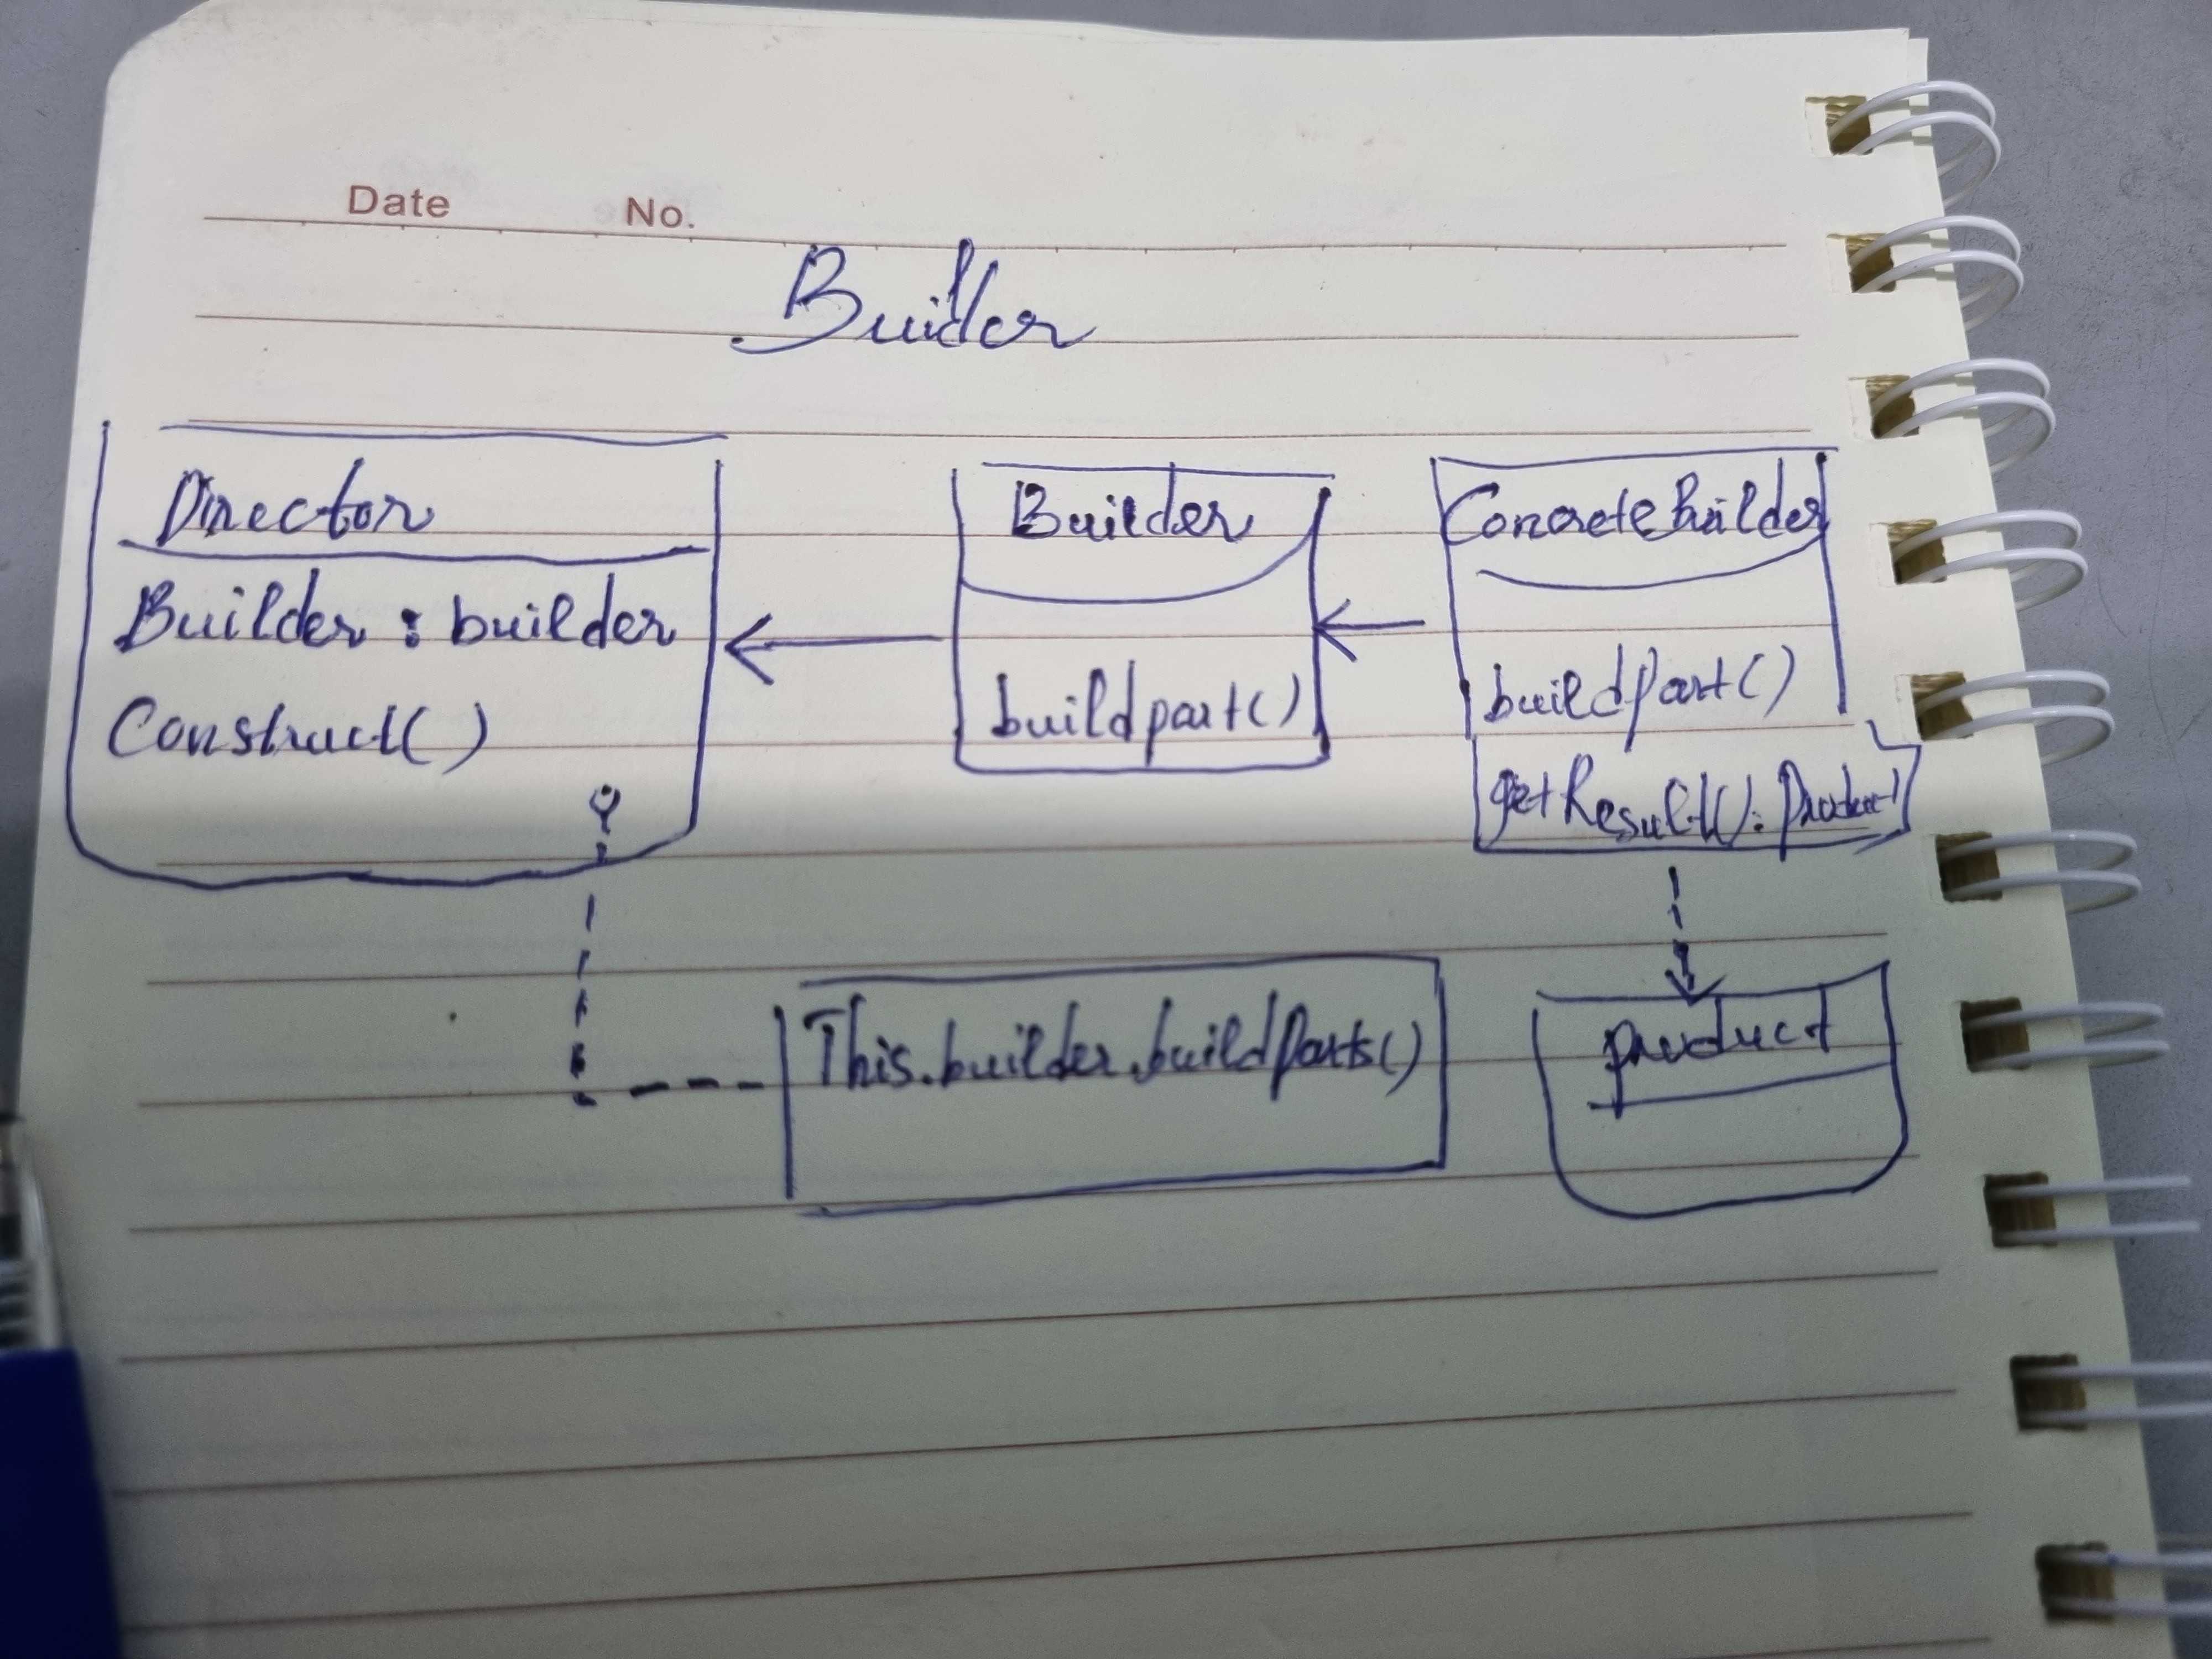 Date No.
Builder
Director
Builder : builder
Construct()
Builder
buildpart()
ConcreteBuilder
buildPart()
getResult(): Product
This.builder.buildParts()
product